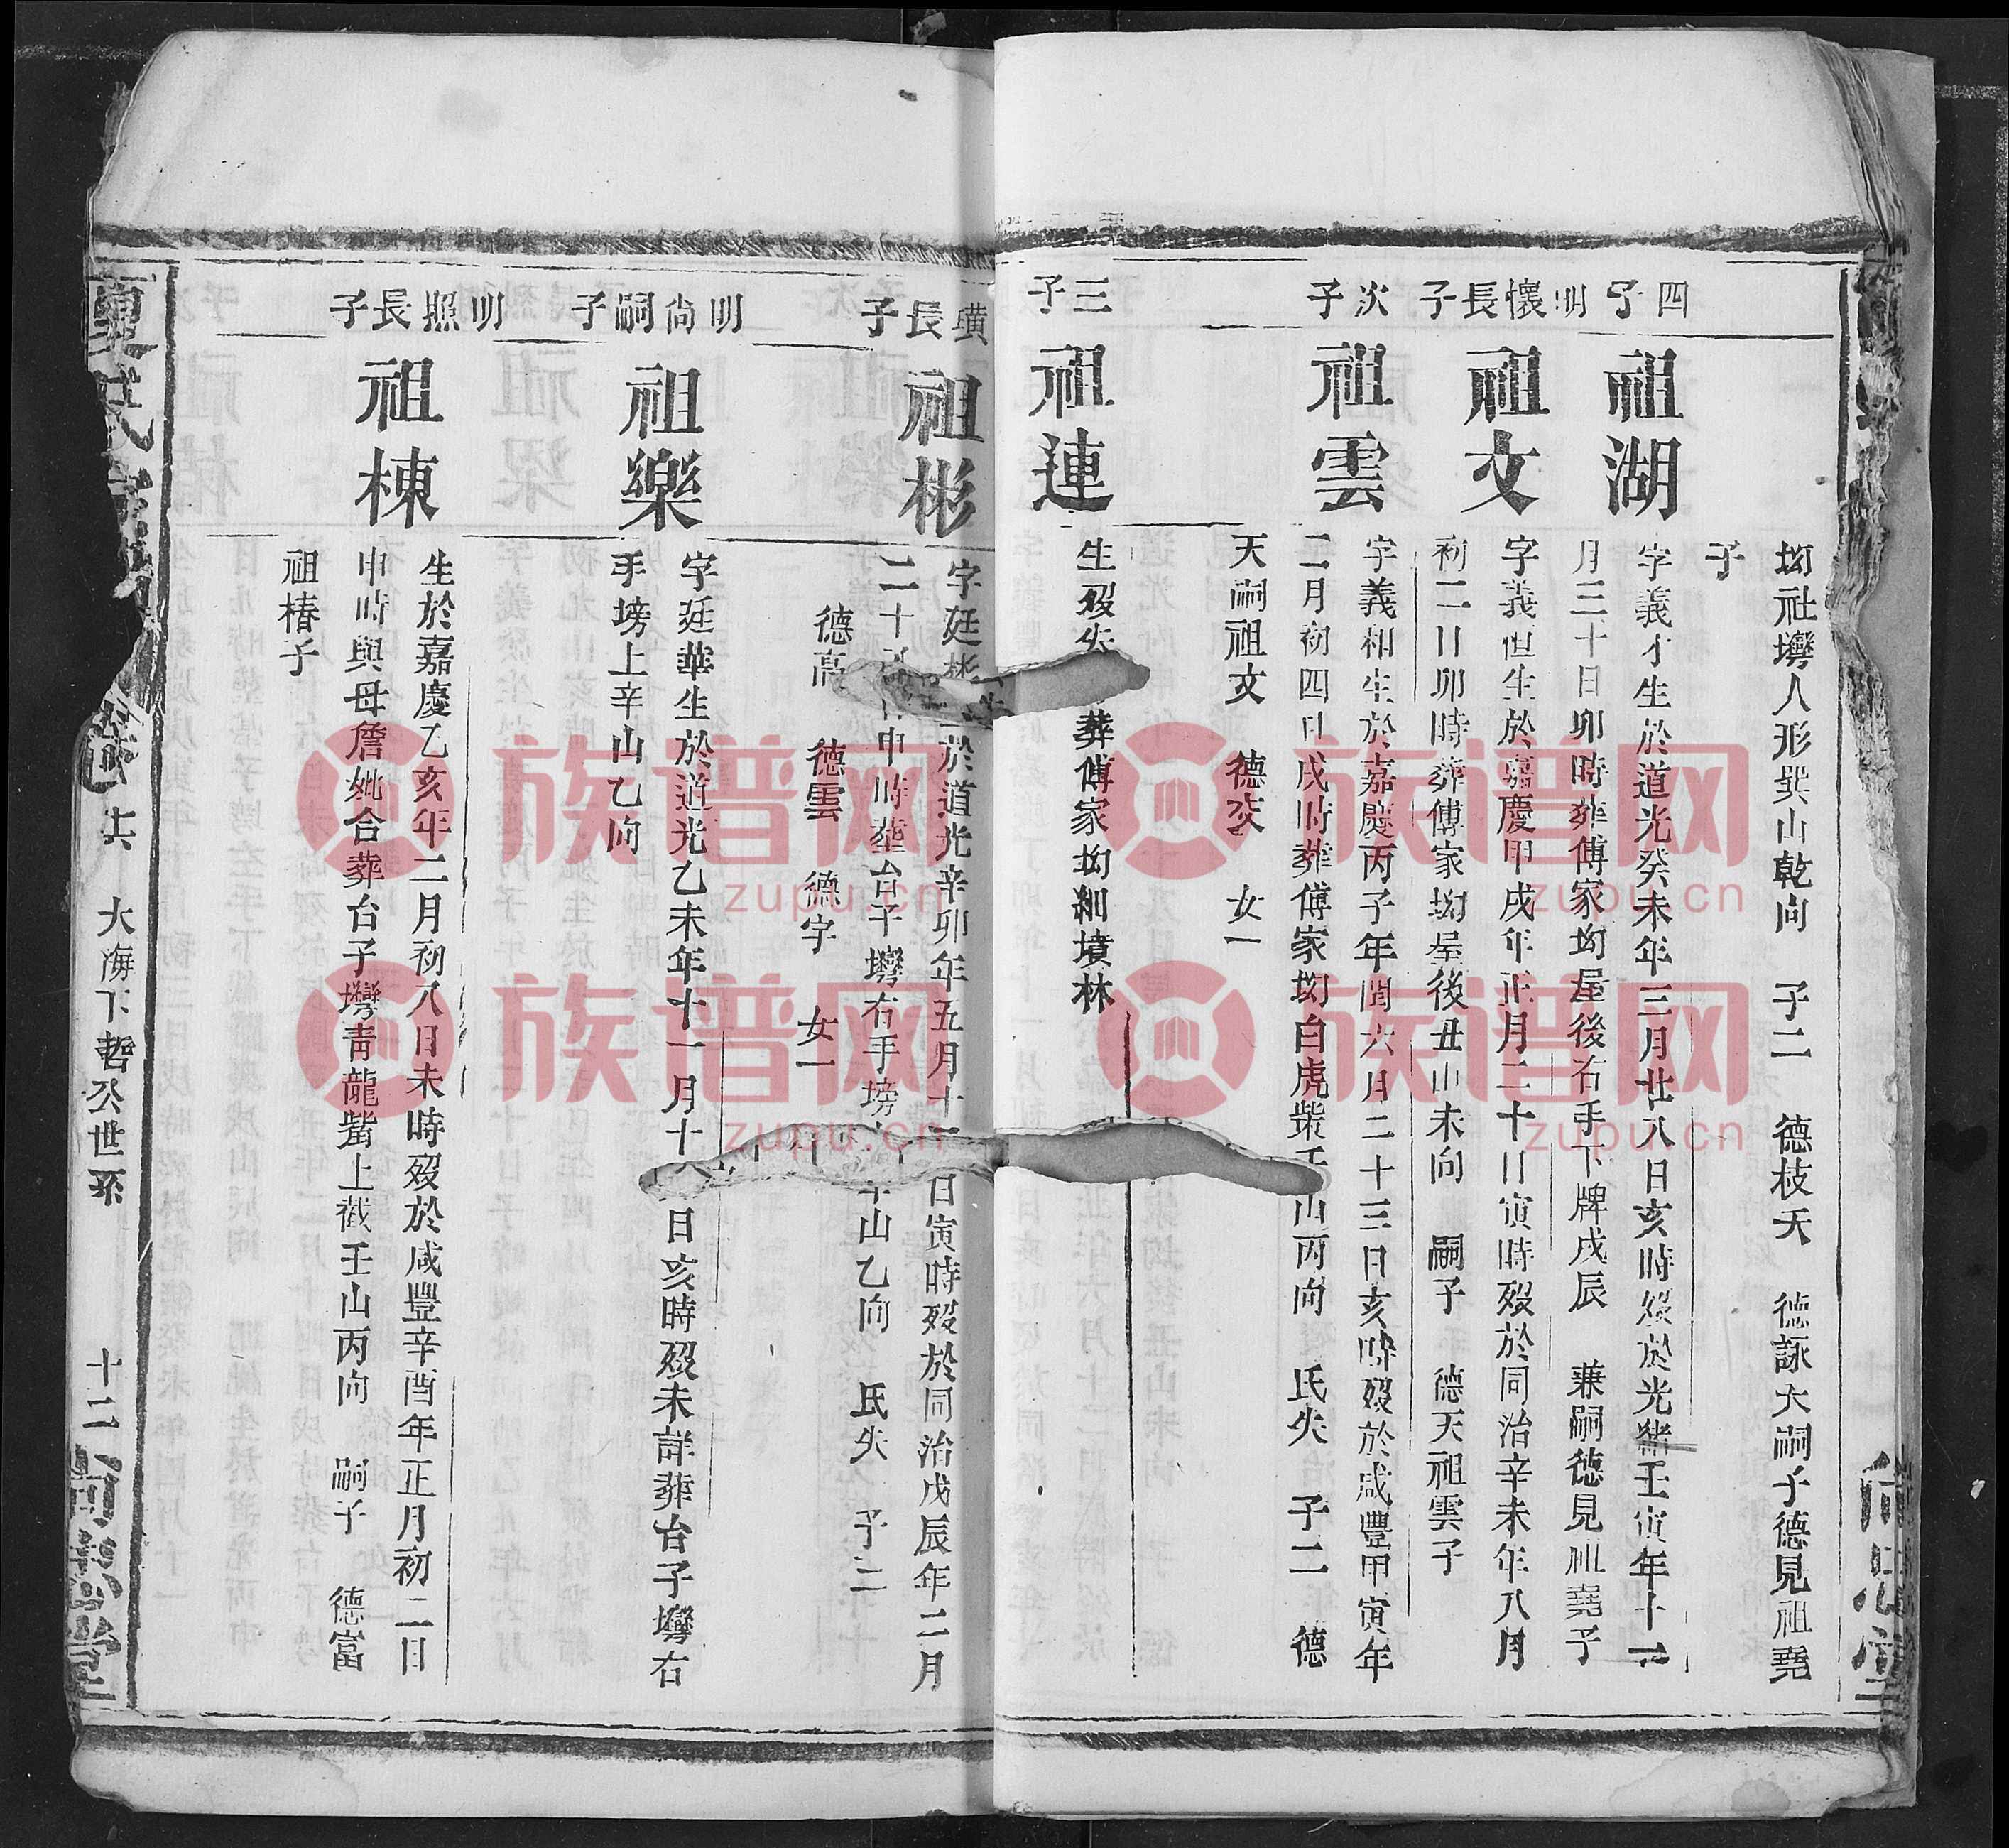 坳社塆人形巽山乾向　子二　德枝夭　德詠大嗣子德見祖堯
子
四子
祖湖
字義才生於道光癸未年三月廿八日亥時歿於光緒壬寅年十二
月三十日卯時葬傅家坳屋後右手下牌戌辰　兼嗣德見祖堯子
明懷長子
祖文
字義恒生於嘉慶甲戌年正月二十日寅時歿於同治辛未年八月
初二日卯時葬傅家坳屋後丑山未向　嗣子　德天祖雲子
次子
祖雲
字義相生於嘉慶丙子年閏六月二十三日亥時歿於咸豐甲寅年
二月初四日戌時葬傅家坳白虎棠壬山丙向　氏失　子二　德
天嗣祖文　德交　女一
三子
祖連
生歿失　葬傅家坳細墳林
璜長子
祖彬
字廷彬　於道光辛卯年五月十　日寅時歿於同治戊辰年二月
二十　日申時葬台子塆右手塝　辛山乙向　氏失　子三
德高　德雲　德字　女一
明尚嗣子
祖樂
字廷華生於道光乙未年十一月十　日亥時歿未詳葬台子塆右
手塝上辛山乙向
明照長子
祖棟
生於嘉慶乙亥年二月初八日未時歿於咸豐辛酉年正月初二日
申時與母詹妣合葬台子塆青龍嘴上截壬山丙向　嗣子　德富
祖椿子
氏　卷　大海下哲公世系　十二　堂
族谱网
zupu.cn
族谱网
zupu.cn
族谱网
zupu.cn
族谱网
zupu.cn